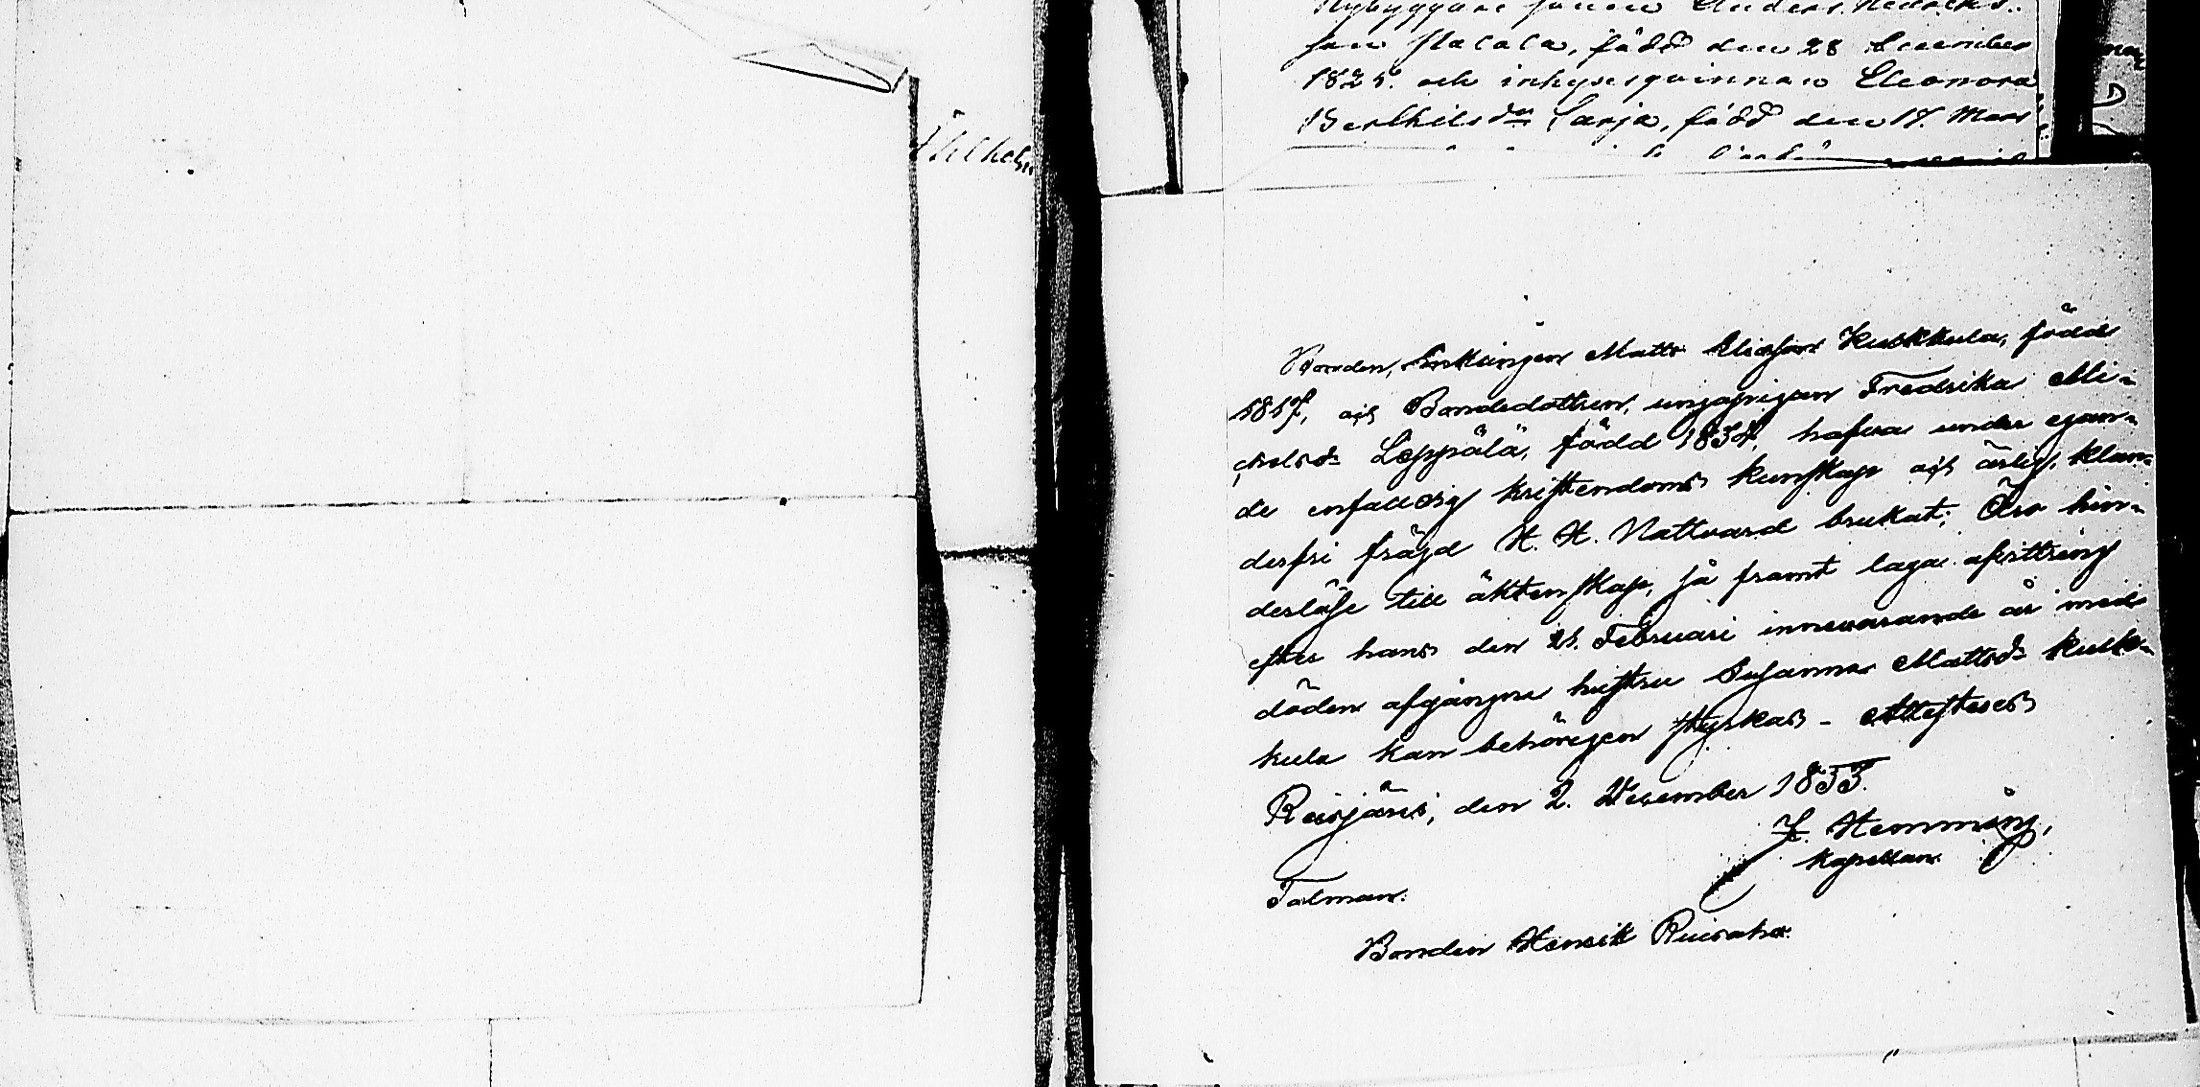 Nybyggare sonen Anders Hedricks-
son Halala, född den 28 December
1825. och inhysesqvinnan Eleonora
Berthilsdr Sarja, född den 17. Mars
Wilhelm
Bonden, Enklingen Matts Eliasson Kulkkula, född
1817, och Bondedottren, ungapigan Fredrika Mi-
chelsdr Leppälä, född 1834, hafva under egan-
de enfaldig kristendoms kunskap och ärlig, klan-
derfri fräjd H. H. Nattvard brukat; Äro hin-
derlöse till äktenskap, så framt laga afvittring
efter hans den 21. Februari innevarande år med
döden afgångne hustru Susanna Mattsdr Kulk-
kula kan behörigen styrkas - Attesteres
Reisjärvi, den 2. December 1853.
J. Hemming,
Kapellan.
Talman.
Bonden Henrik Ruisaho.